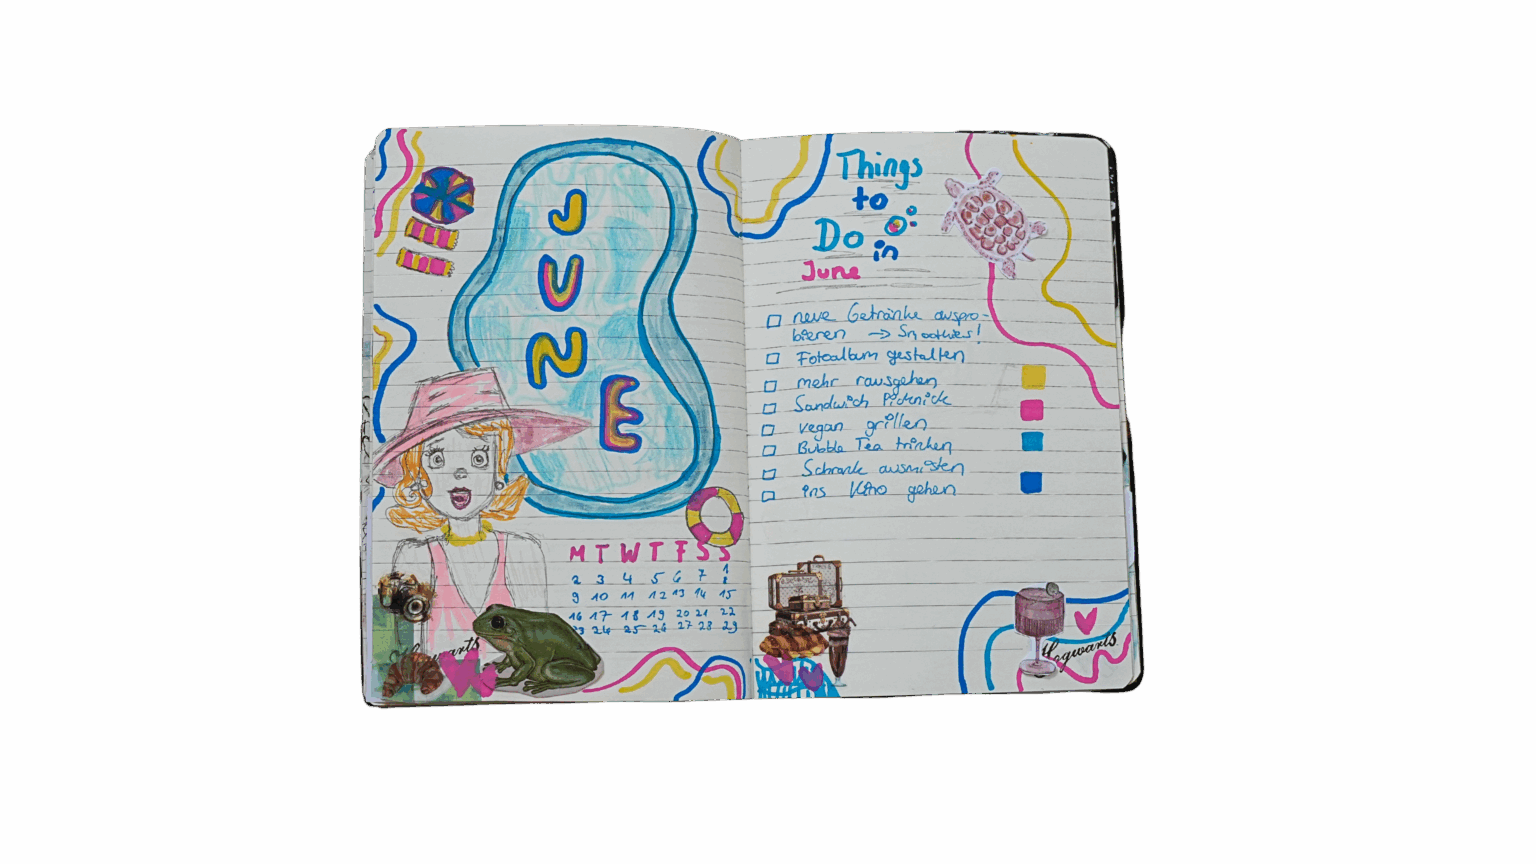 JUNE
M T W T F S S
1
2 3 4 5 6 7 8
9 10 11 12 13 14 15
16 17 18 19 20 21 22
23 24 25 26 27 28 29
Hogwarts
Things
to
Do
in
June
neue Getränke auspro-
bieren → Smoothies!
Fotoalbum gestalten
mehr rausgehen
Sandwich Picknick
vegan grillen
Bubble Tea trinken
Schrank ausmisten
ins Kino gehen
Hogwarts